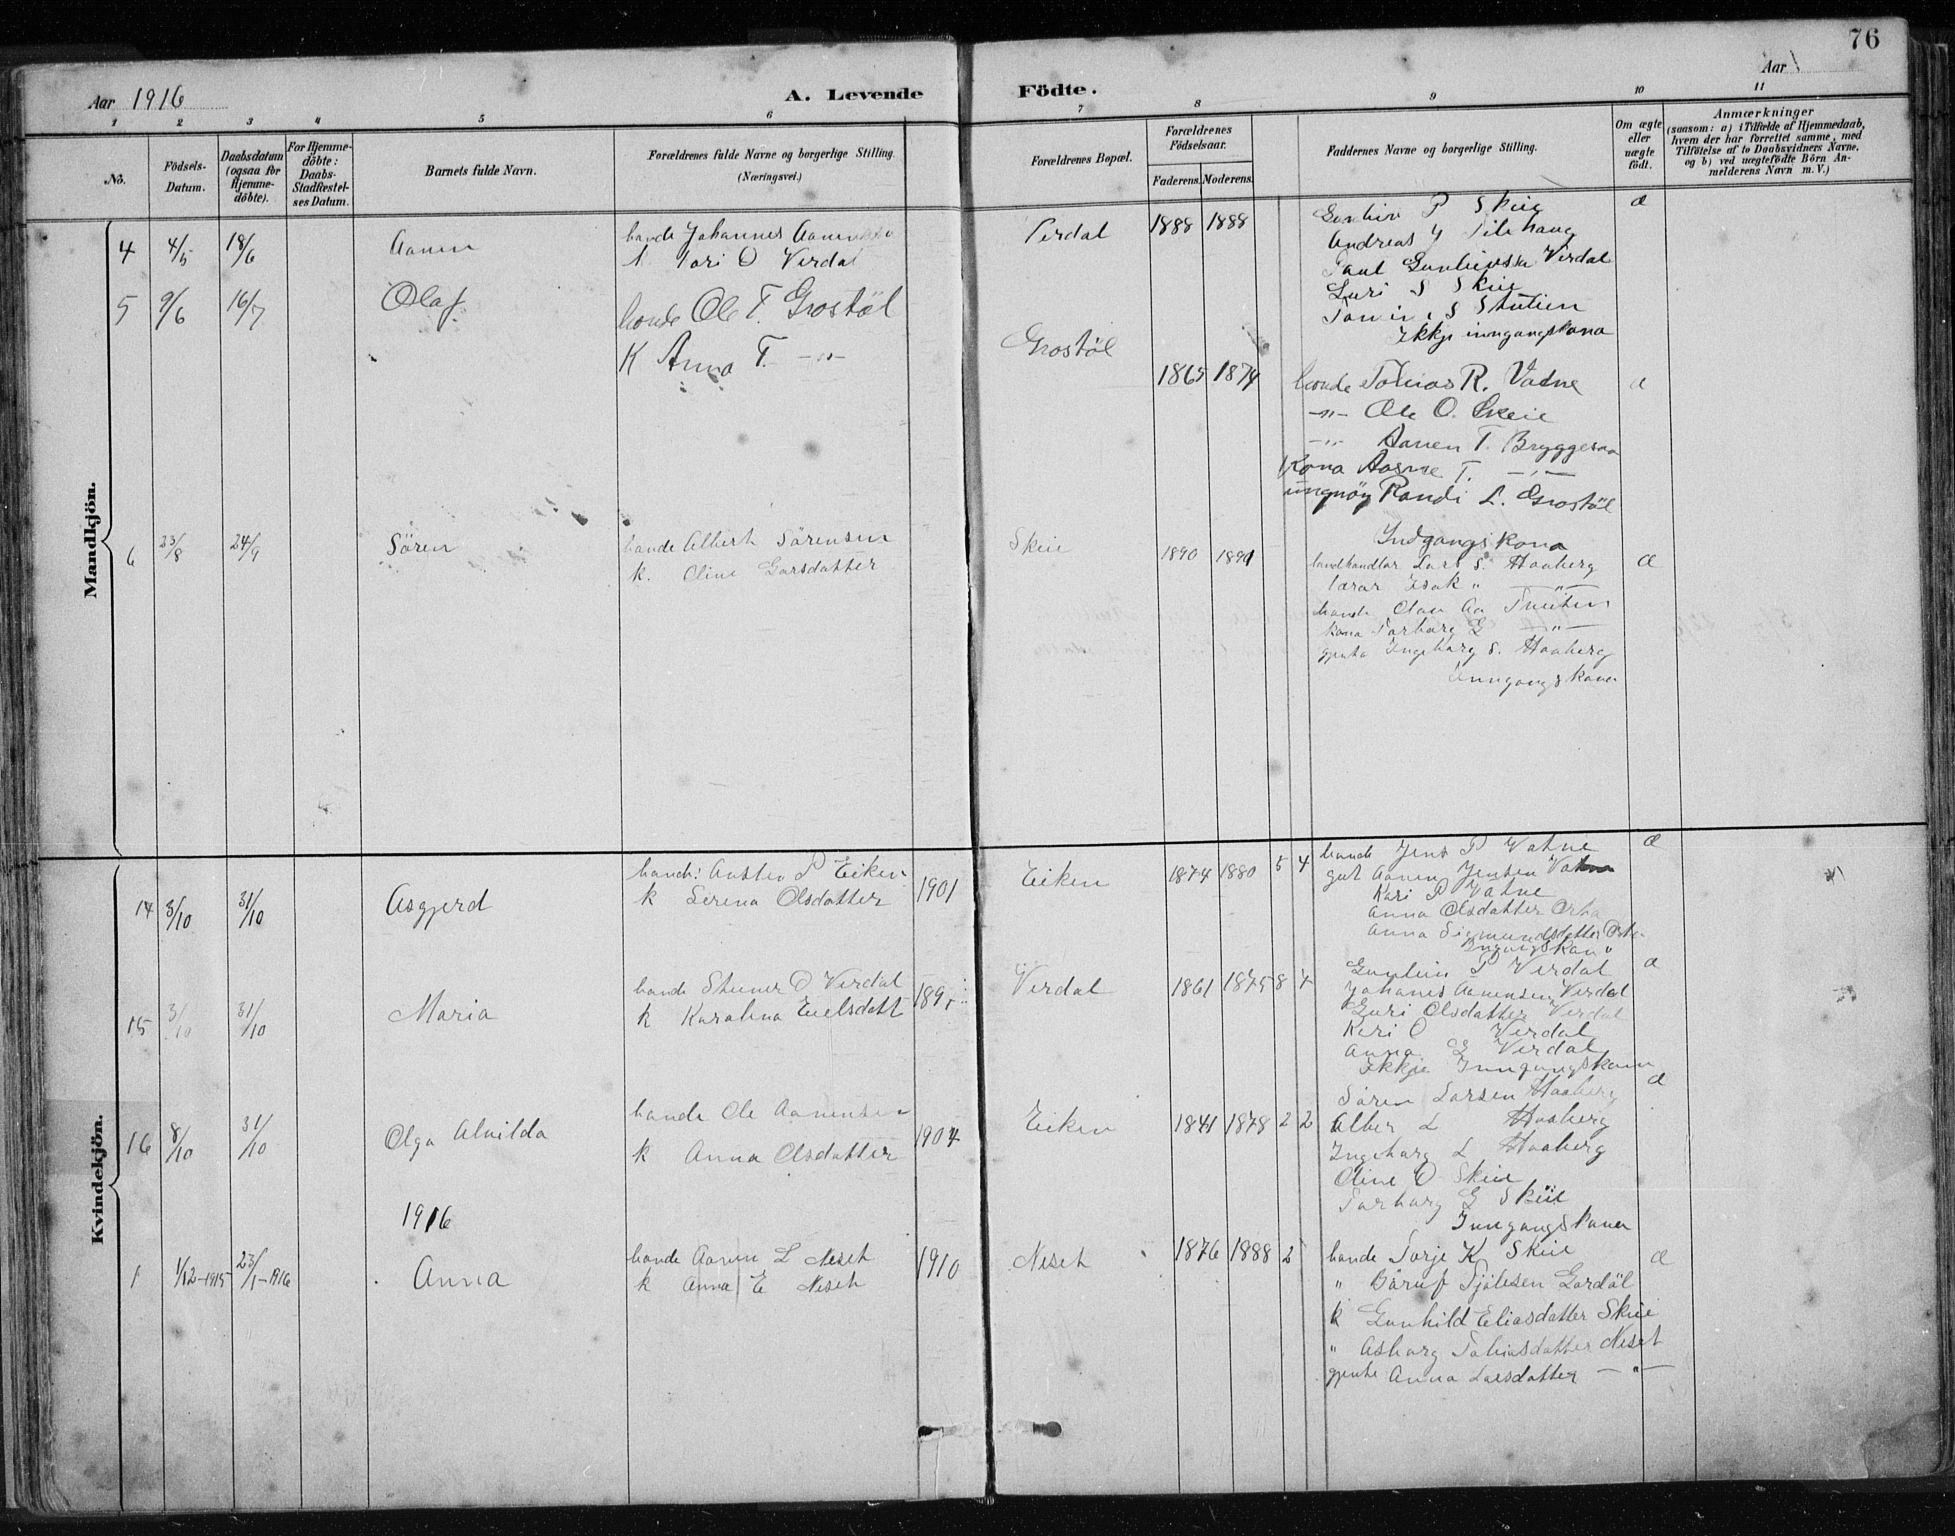 76
Aar 1916
A. Levende Födte.
Aar
1 2 3 4 5 6 7 8 9 10 11
No.
Födsels-
Datum.
Daabsdatum
(ogsaa for
Hjemme-
döbte).
For Hjemme-
döbte:
Daabs-
Stadfæstel-
ses Datum.
Barnets fulde Navn.
Forældrenes fulde Navne og borgerlige Stilling.
(Næringsvei.)
Forældrenes Bopæl.
Forældrenes
Födselsaar.
Faderens. Moderens.
Faddernes Navne og borgerlige Stilling.
Om ægte
eller
uægte
födt.
Anmærkninger
(saasom: a) i Tilfælde af Hjemmedaab,
hvem der har forrettet samme, med
Tilföielse af to Daabsvidners Navne,
og b) ved uægtefödte Börn An-
melderens Navn m. V.)
Mandkjön.
4 4/5 18/6 Aanen
bonde Johannes
Tori O Verdal
1888 1888
P Skeie
Andreas
Paul Verdal
Guri S Skeie
S
Ikkje inngangskona
æ
5 9/6 16/7 Olaf
bonde Ole T. Grostöl
K Anna T. -"-
Grostöl
1865 1874
bonde Tobias R. Vatne
-"- Ole O. Skeie
-"- Aanen T. Bryggesaa
Kona Aasne T. -"-
Randi L. Grostöl
Indgangskona
æ
6 23/8 24/9 Sören
bonde Albert Sörensen
k. Oline Garsdatter
Skeie
1890 1891
landhandlar Lars S. Haaberg
lærar Isak " -"-
bonde Olav Aa
kona Torborg G -"-
gjenta Ingeborg S. Haaberg
Inngangskona
æ
Kvindekjön.
14 3/10 31/10 Asgjerd
P Eiken
k Serina Olsdatter
1901
Eiken
1874 1880 5 4
bonde Jens P Vatne
gut Aanen Jensen Vatne
Kari P Vatne
Anna Olsdatter
Anna Sigmundsdatter
æ
15 3/10 31/10 Maria
bonde Steiner O Verdal
k Karolina
Verdal
1861 1875 8
P Verdal
Johanes Aanensen Verdal
Guri Olsdatter Verdal
Kari O Verdal
Anna G Verdal
Ikkje Inngangskona
æ
16 8/10 31/10 Olga Alvilda
bonde Ole Aanensen
k Anna Olsdatter
1904
Eiken
1841 1878 2 2
Sören Larsen Haaberg
Alber L Haaberg
Ingeborg L Haaberg
Oline O Skeie
Torborg G Skeie
Inngangskona
æ
1916
1 1/12-1915 23/1-1916 Anna
bonde Aanen L Neset
k Anna E Neset
1910
Neset
1876 1888 2
bonde Torje K Skeie
" Bäruf Tjölesen Gardöl
k Gunhild Eliasdatter Skeie
" Asborg Tobiasdatter Neset
gjente Anna Larsdatter -"-
æ